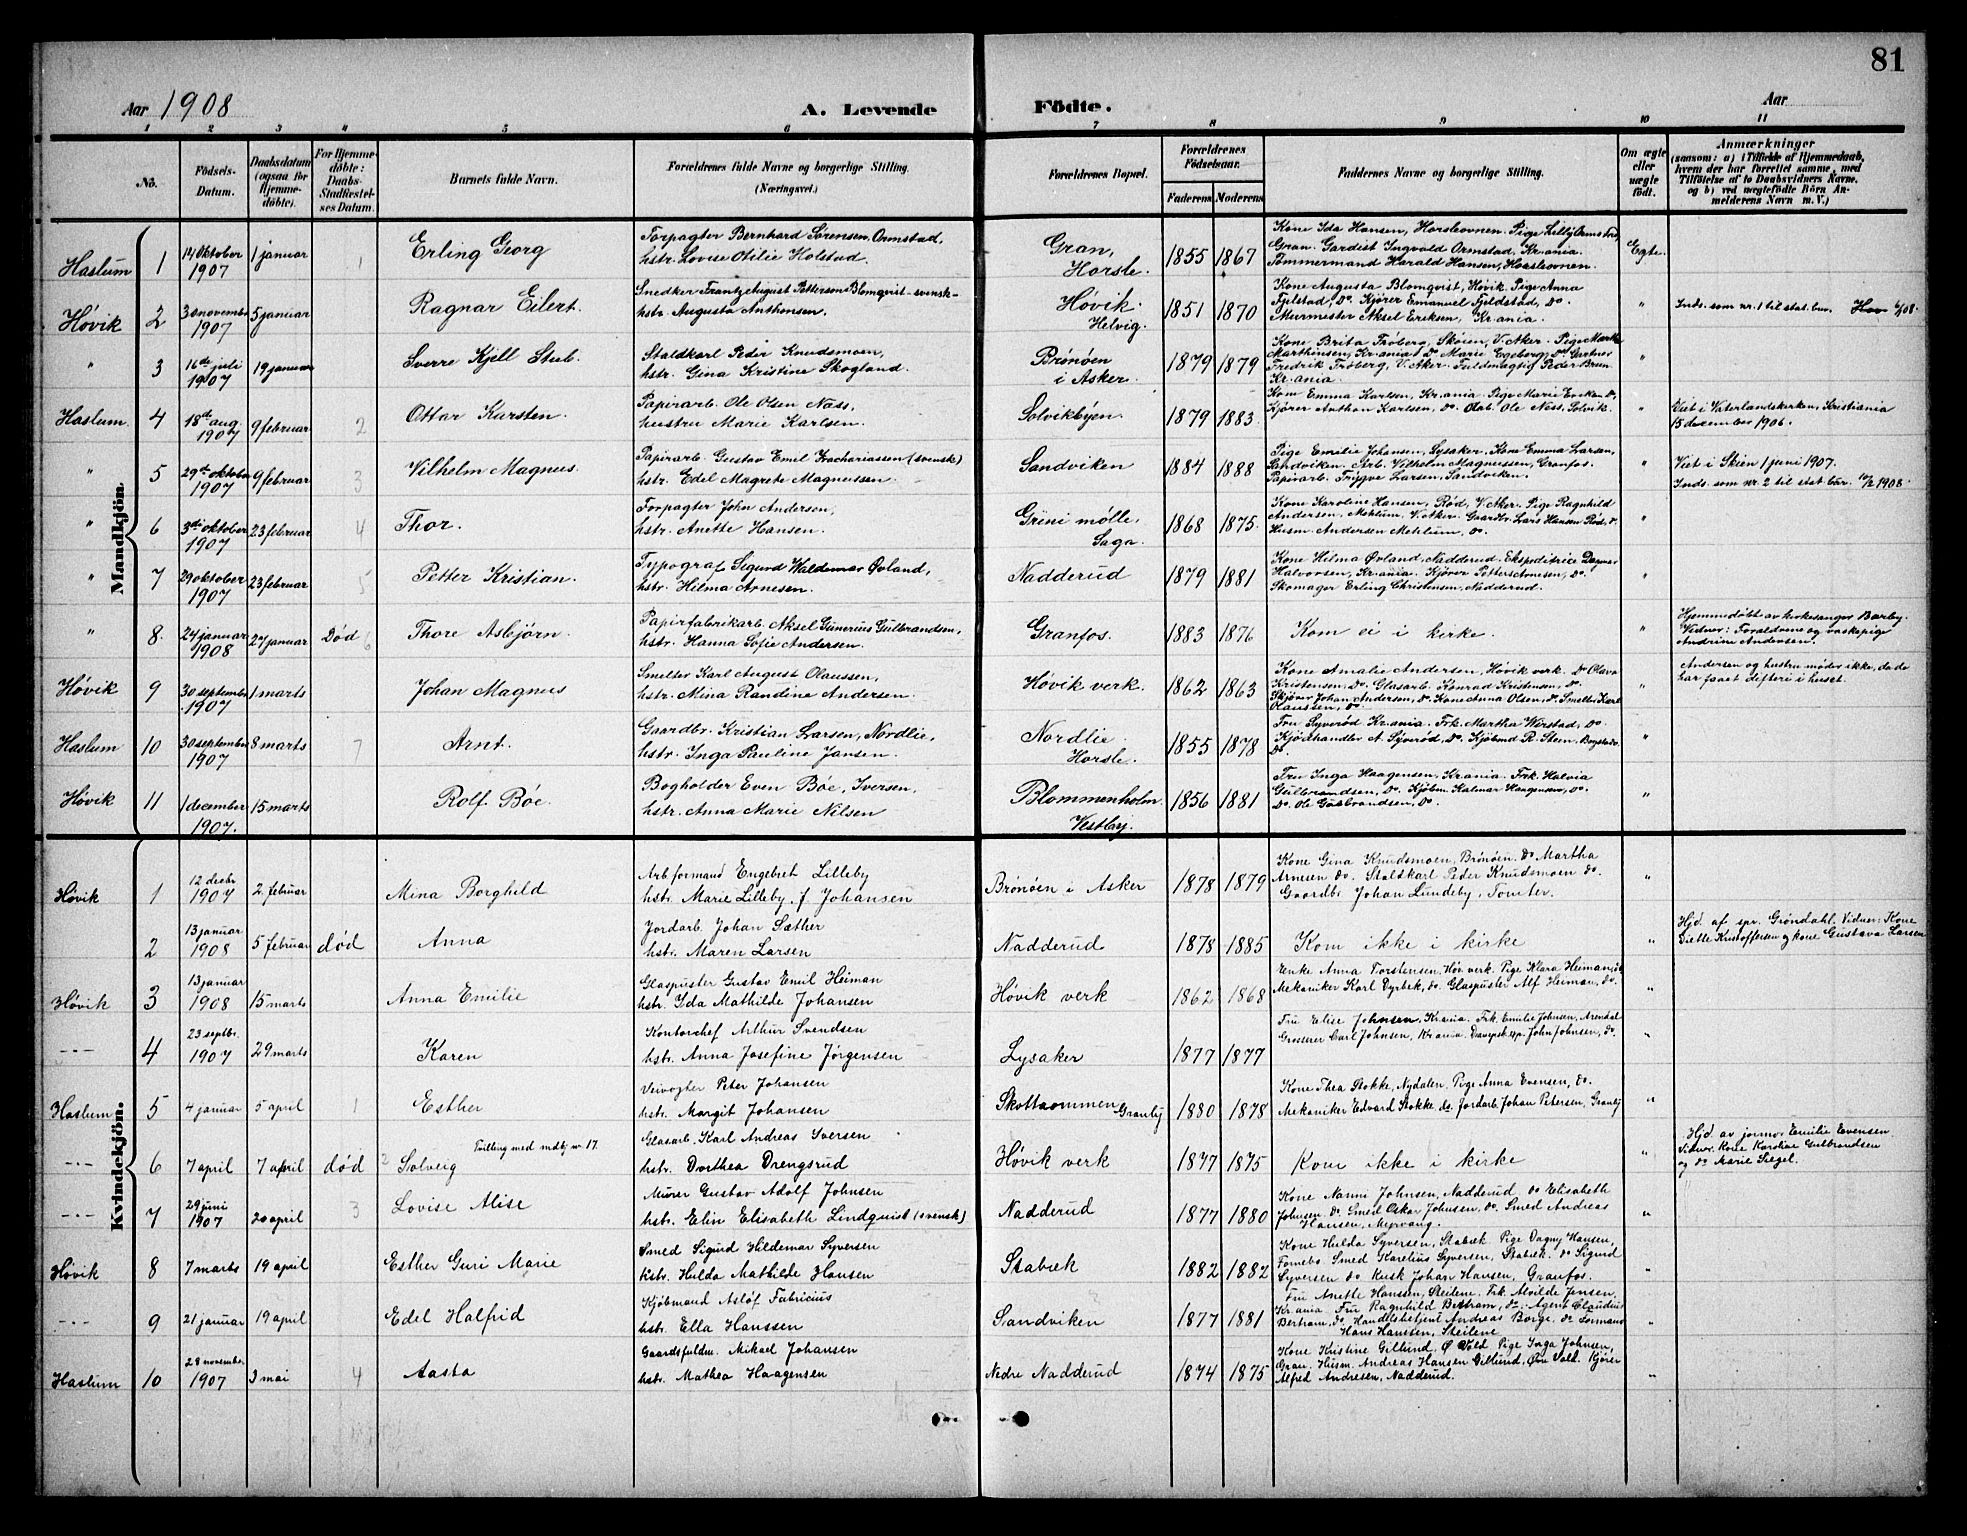 81
Aar 1908
A. Levende Födte.
Aar
1 2 3 4 5 6 7 8 9 10 11
No.
Födsels-Datum.
Daabsdatum (ogsaa for Hjemme-döbte).
For Hjemme-döbte: Daabs-Stadfæstel-ses Datum.
Barnets fulde Navn.
Forældrenes fulde Navne og borgerlige Stilling. (Næringsvei.)
Forældrenes Bopæl.
Forældrenes Födselsaar.
Faderens Moderens
Faddernes Navne og borgerlige Stilling.
Om ægte eller uægte födt.
Anmærkninger
(saasom: a) i Tilfælde af Hjemmedaab,
hvem der har forrettet samme, med
Tilföielse af to Daabsvidners Navne,
og b) ved uægtefödte Börn An-
melderens Navn m. V.)
Mandkjön.
Haslum 1 14 Oktober 1907 1 januar 1 Erling Georg
Torpagter Bernhard Sørensen Ormstad,
hstr. Lovise Otilie Holstad.
Gran, Horsle. 1855 1867
Kone Ida Hansen, Horsleovnen. Pige Lilly Ormstad,
Gran. Gardist Ingvald Ormstad, Kr.ania.
Tømmermand Harald Hansen, Horsleovnen.
Egte.
Høvik 2 30 november 1907 5 januar Ragnar Eilert.
Snedker Frantz August Petterson Blomqvist - svensk -
hstr. Augusta Anthensen.
Høvik Helvig. 1851 1870
Kone Augusta Blomqvist, Høvik. Pige Anna
Fjelstad, Do. Kjører Emanuel Fjeldstad, Do.
Murmester Aksel Eriksen, Kr.ania.
"
Inds. som nr. 1 til stat. bur.
" 3 16de juli 1907 19 januar Sverre Kjell Stub.
Staldkarl Peder Knudsmoen,
hstr. Gina Kristine Skogland.
Brønøen i Asker. 1879 1879
Kone Brita Frøberg, Skøien, V. Aker. Pige Marthe
Marthinsen, Kr.ania. Do Marie Egeberg, Do. Gartner
Fredrik Frøberg, V. Aker. Fuldmægtig Peder Brun
Kr.ania.
"
Haslum. 4 18d aug. 1907 9 februar 2 Ottar Karsten.
Papirarb. Ole Olsen Næss,
hustru Marie Karlsen.
Solvikbyen. 1879 1883
Kone Emma Karlsen, Kr.ania. Pige Marie Eriksen Do,
Kjører Anthon Karlsen, Do. Olab. Ole Næss, Solvik.
"
Viet i Vaterlandskirken, Kristiania
15 december 1906.
" 5 29d oktober 1907 9 februar 3 Vilhelm Magnus.
Papirarb. Gustav Emil Zachariassen (svensk)
hstr. Edel Magrete Magnussen.
Sandviken 1884 1888
Pige Emilie Johansen, Lysaker. Kone Emma Larsen,
Sandviken. Arb. Vilhelm Magnussen, Granfos.
Papirarb. Trygve Larsen, Sandviken.
"
Viet i Skien 1 juni 1907.
Inds. som nr. 2 til stat. bur. 10/2 1908.
" 6 3di oktober 1907 23 februar 4 Thor.
Forpagter John Andersen,
hstr. Anette Hansen.
Grini mølle, Saga. 1868 1875
Kone Karoline Hansen, Rød, V. Aker. Pige Ragnhild
Andersen, Mehlum, V. Aker. Gaardbr. Lars Hansen Rød, do.
Husm. Andersen Mehlum, do.
"
" 7 29 oktober 1907 23 februar 5 Petter Kristian.
Typograf Sigurd Waldemar Øvland,
hstr. Hilma Arnesen.
Nadderud 1879 1881
Kone Hilma Øvland, Nadderud. Ekspeditrice Dagner
Halvorsen, Kr.ania. Kjører Petter Arnesen, Do.
Skomager Erling Christensen, Nadderud.
"
" 8. 24 januar 1908 24 januar Død 6 Thore Asbjørn.
Papirfabrikarb. Aksel Gunerius Gulbrandsen,
hstr. Hanna Sofie Andersen.
Granfos. 1883 1876
Kom ei i kirke.
"
Hjemmedøbt av kirkesanger Barby.
Vidner: Foraldrene og vaskepige
Andrine Andersen.
Høvik 9 30 september 1907 1 marts Johan Magnus
Smelter Karl August Olaussen,
hstr. Mina Randine Andersen.
Høvik verk. 1862 1863
Kone Amalie Andersen, Høvik verk. Do Olava
Kristensen, Do. Glasarb. Konrad Kristensen, do.
Skjører Johan Andersen, Do. Kone Anna Olsen, do. Smelter Karl
Olaussen, do.
"
Andersen og hustru møder ikke, da de
har faaet difteri i huset.
Haslum 10 30 september 1907 8 marts 7 Arnt.
Gaardbr. Kristian Larsen, Nordlie,
hstr. Inga Pauline Jansen.
Nordlie Horsle. 1855 1878
Fru Syverød Kr.ania. Frk. Martha Werstad, Do.
Kjødhandler A. Syverød, Do. Kjøbmd R. Steen, Bogstadv.
Do.
"
Høvik 11 1 december 1907. 15 marts Rolf Bøe.
Bogholder Even Bøe, Iversen,
hstr. Anna Marie Nilsen
Blommenholm Vestby. 1856 1881
Fru Inga Haagensen, Kr.ania. Frk. Halvia
Gulbrandsen, do. Kjøbm. Kalmar Haagensen, do.
Do. Ole Gulbrandsen, Do.
"
Kvindekjön.
Høvik 1 12 decbr 1907 2 februar Mina Borghild
Arb.formand Engebret Lilleby
hstr. Marie Lilleby. f. Johansen
Brønøen i Asker 1878 1879
Kone Gina Knudsmoen, Brønøen. do Martha
Arnesen do. Staldkarl Peder Knudsmoen do.
Gaardbr. Johan Lundeby, Tomter.
"
2 13 januar 1908 5 februar død Anna
Jordarb. Johan Sæther
hstr. Maren Larsen
Nadderud 1878 1885
Kom ikke i kirke
"
Hjd. af spr. Grøndahl. Vidner: Kone
Diette Kristoffersen og kone Gustava Larsen
Høvik 3 13 januar 1908 15 marts Anna Emilie
Glaspuster Gustav Emil Heiman
hstr. Ida Mathilde Johansen
Høvik verk 1862 1868
Enke Anna Torstensen, Høv. verk. Pige Klara Heiman, do
Mekaniker Karl Dyrbek, do. Glaspuster Alf Heiman, do.
"
-"- 4 23 septbr. 1907 29 marts Karen
Kontorchef Arthur Svendsen
hstr. Anna Josefine Jørgensen
Lysaker 1877 1877
Fru Elise Johnsen, Kr.ania. Frk. Emilie Johnsen, Arendal
Grosserer Carl Johnsen, Kr.ania. Dampsk.exp. John Johnsen, do.
"
Haslum 5 4 januar 5 april 1 Esther
Veivogter Peter Johansen
hstr. Margit Johansen
Skottaommen Granby 1880 1878
Kone Thea Stokke, Nydalen. Pige Anna Evensen, do.
Mekaniker Edvard Stokke do. Jordarb. Johan Petersen, Granby
"
-"- 6 7 april 7 april død 2 Solveig
Tvilling med mdkj nr. 17.
Glasarb. Karl Andreas Iversen
hstr. Dorthea Drengsrud
Høvik verk 1877 1875
Kom ikke i kirke
"
Hjd. av jormor Emilie Evensen
Vidner. Kone Karoline Gulbrandsen
og do Marie Siegel.
-"- 7 29 juni 1907 20 april 3 Lovise Alise
Murer Gustav Adolf Johnsen
hstr. Elin Elisabeth Lindquist (svensk)
Nadderud 1877 1880
Kone Nanni Johnsen, Nadderud do Elisabeth
Johnsen do. Smed Oskar Johnsen, do. Smed Andreas
Hansen, Myrvang.
"
Høvik 8 7 marts 19 april Esther Guri Marie
Smed Sigurd Hildemar Syversen
hstr. Hulda Mathilde Hansen
Stabæk 1882 1882
Kone Hulda Syversen, Stabæk Pige Dagny Hansen,
Fornebo Smed Karelius Syversen, Stabæk. do Sigurd
Syversen do Kusk Johan Hansen, Granfos.
"
-"- 9 21 januar 19 april Edel Halfrid
Kjøbmand Asløf Fabricius
hstr. Ella Hanssen
Sandviken 1877 1881
Fru Anette Hanssen, Steilene. Frk. Alvilde Jensen,
Kr.ania. Fru Ragnhild Bertram, do: Agent Claudius
Bertram, do. Handelsbetjent Andreas Borge, do Lormand
Hans Hanssen, Steilene
"
Haslum 10 28 november 1907 3 mai 4 Aasta
Gaardsfuldm. Mikael Johansen
hstr. Mathea Haagensen
Nedre Nadderud 1874 1875
Kone Kristine Gillund, Ø Vold Pige Inga Johnsen,
Gran. Husm. Andreas Hansen Gillund, Øvr Voll. Kjører
Alfred Andresen, Nadderud.
"